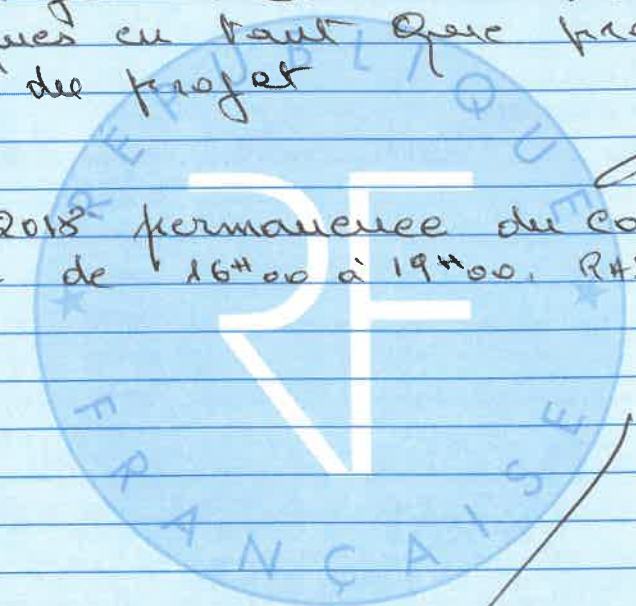 en tant que
du projet
2018 permanence du co
de 16H00 à 19H00. RA
RÉPUBLIQUE
RF
FRANÇAISE